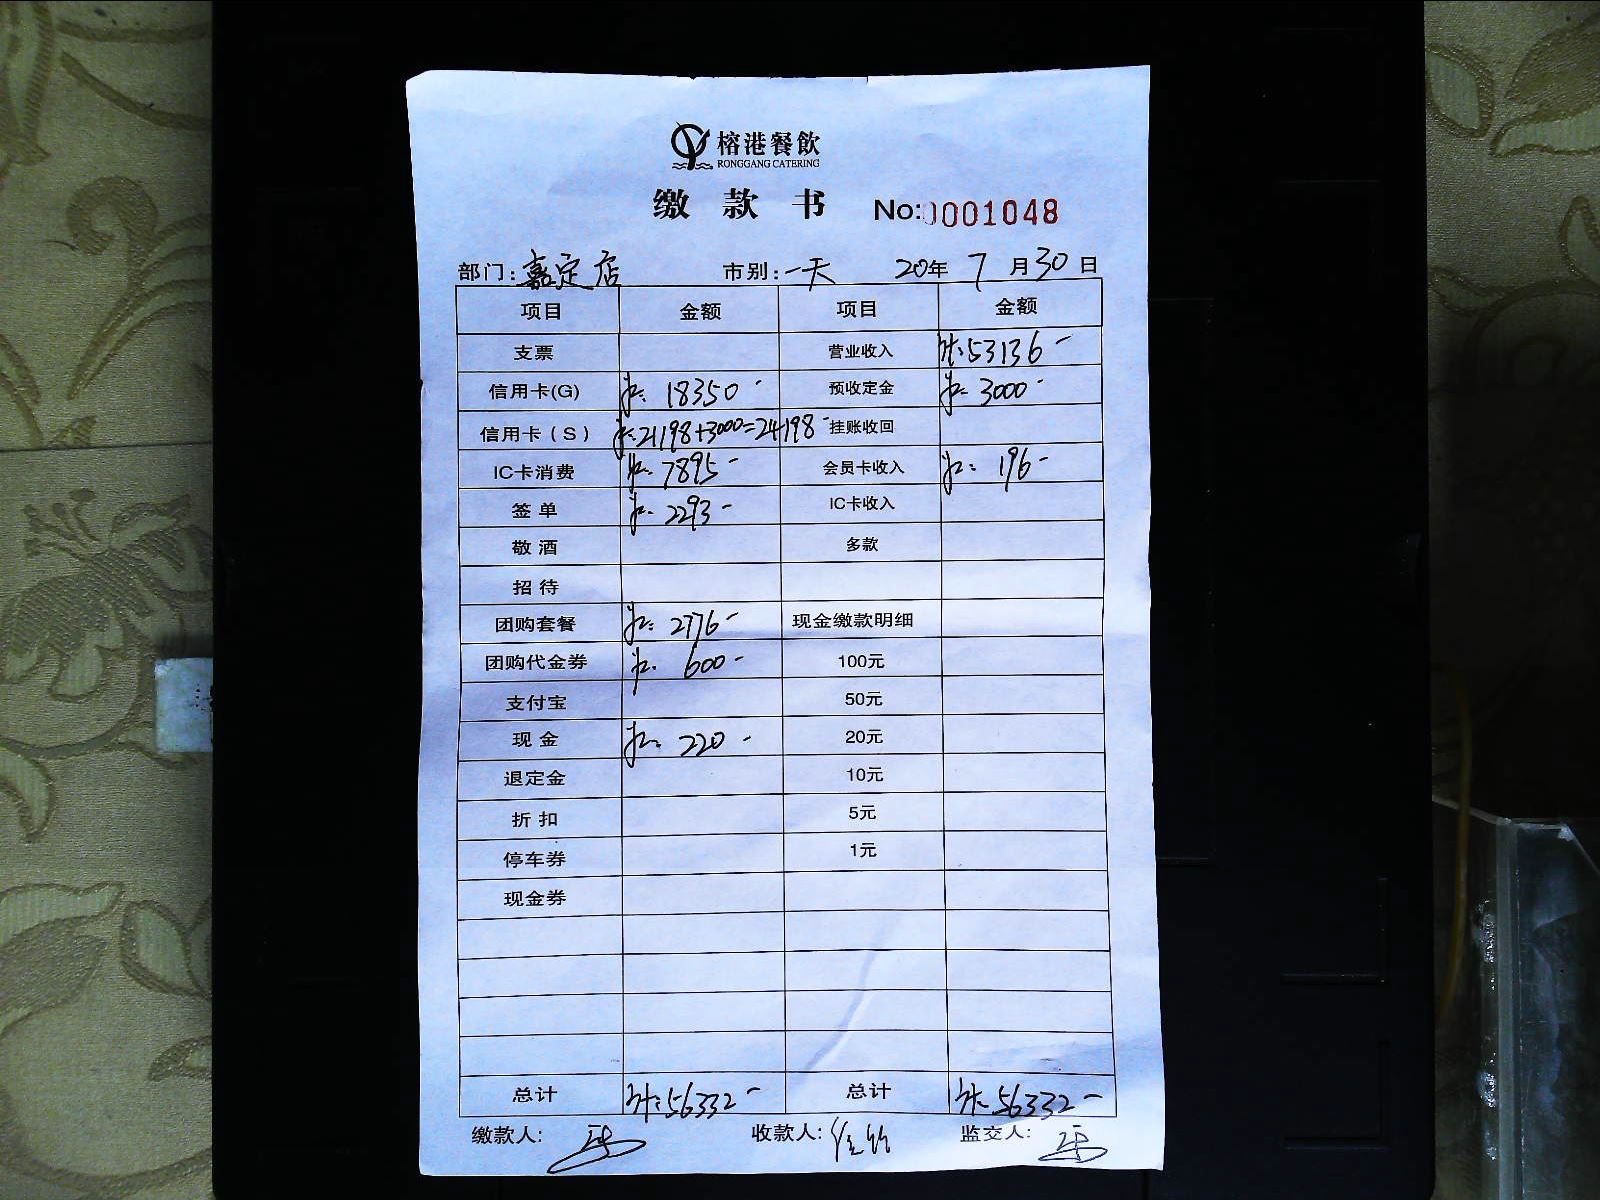 榕港餐飲
RONGGANG CATERING
缴款书 No:0001048
部门:嘉定店 市别:一天 20年7月30日
项目 金额 项目 金额
支票 营业收入 计:53136-
信用卡(G) 18350- 预收定金 3000-
信用卡(S) 21198+3000=24198- 挂账收回
IC卡消费 7895- 会员卡收入 196-
签单 2293- IC卡收入
敬酒 多款
招待
团购套餐 2776- 现金缴款明细
团购代金券 600- 100元
支付宝 50元
现金 220- 20元
退定金 10元
折扣 5元
停车券 1元
现金券
总计 计:56332- 总计 计:56332-
缴款人: 收款人: 监交人: